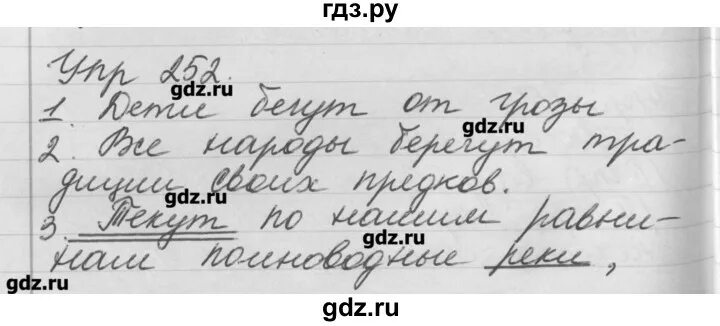 гдз.ру
Упр 252.
gdz.ru
1. Дети бегут от грозы
gdz.ru
2. Все народы берегут тра-
диции своих предков.
gdz.ru
3. Текут по нашим равни-
gdz.ru
нам полноводные реки,
gdz.ru
gdz.ru